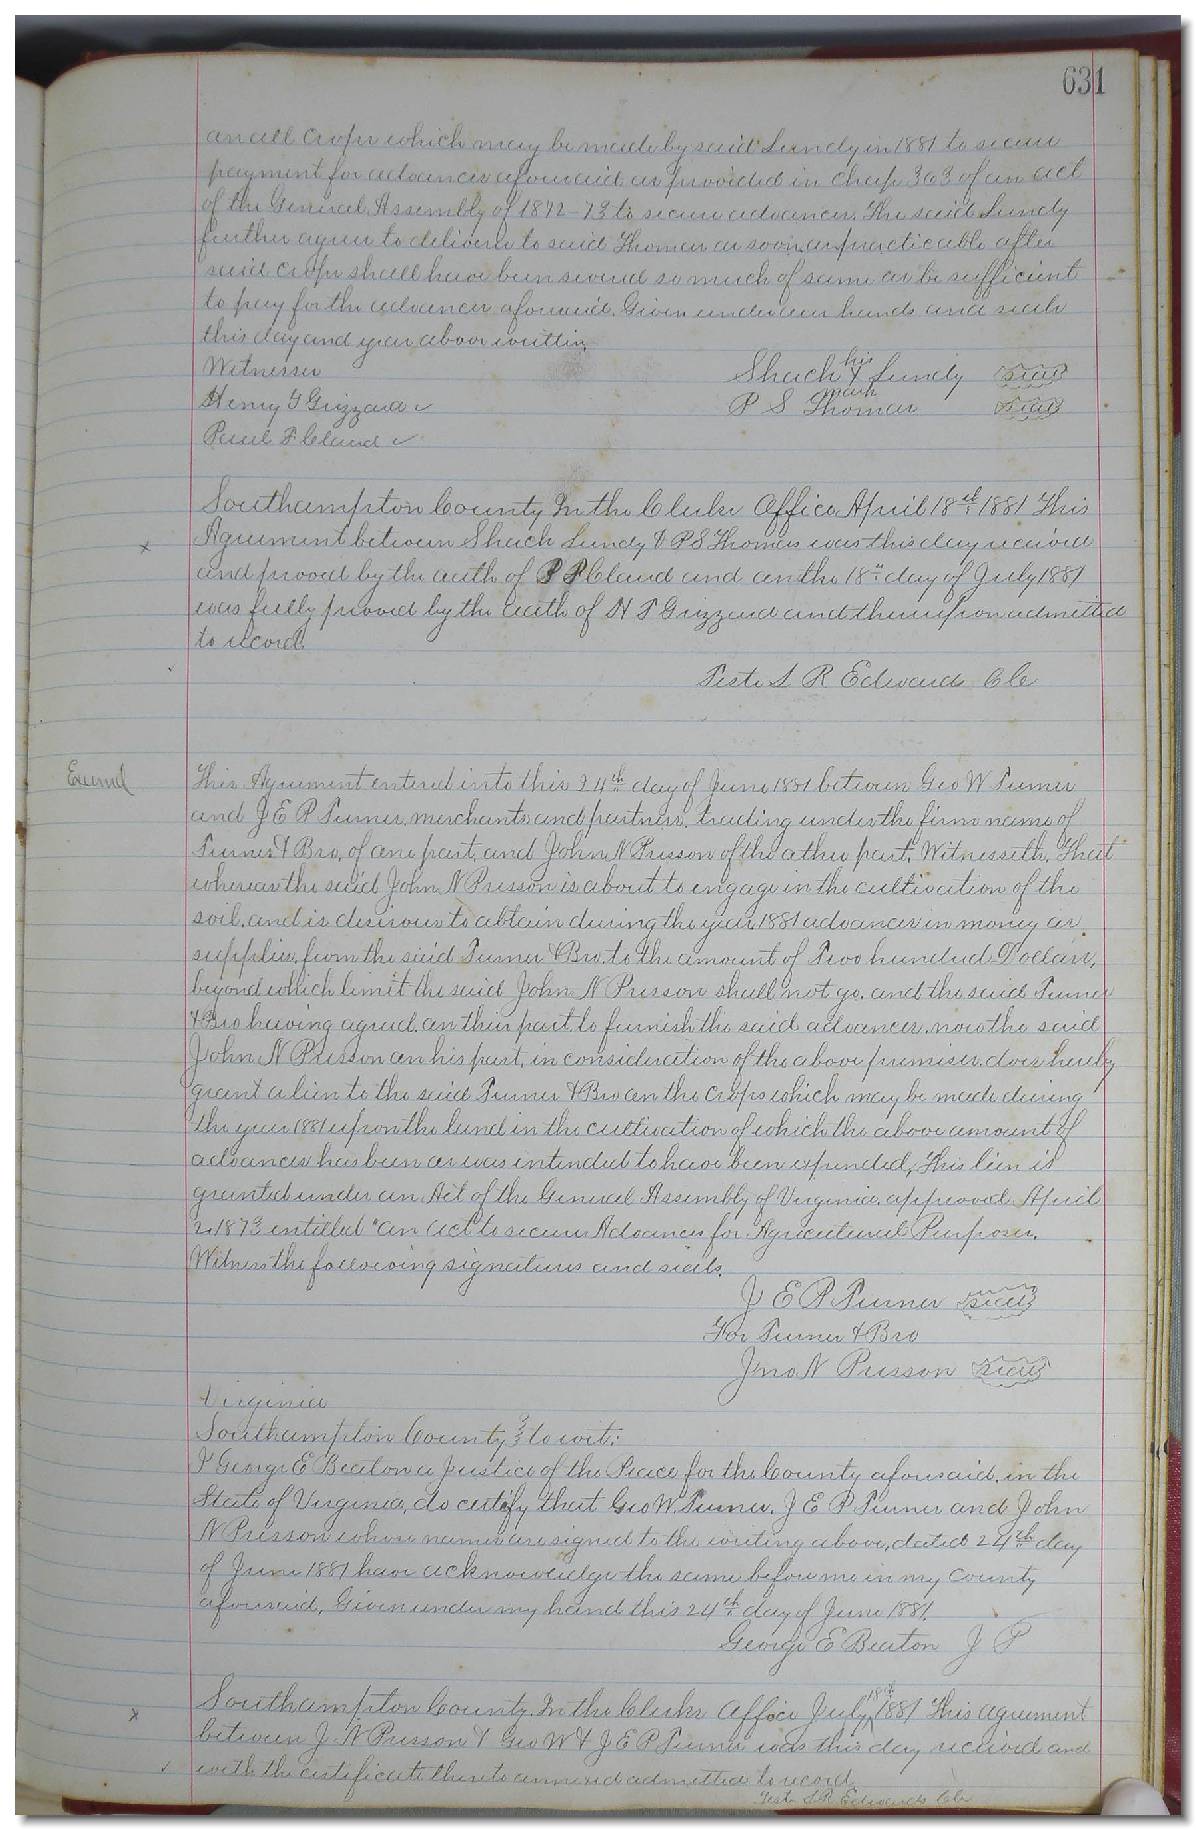 631
on all crops which may be made by said Lundy in 1881 to secure
payment for advances aforesaid as provided in Chap 363 of an act
of the General Assembly of 1872-73 to secure advances. The said Lundy
further agrees to deliver to said Thomas as soon as practicable after
said crops shall have been severed so much of same as be sufficient
to pay for the advances aforesaid. Given under our hands and seals
this day and year above written
Witnesses
Shach his x mark Lundy seal
Henry T Grizzard
P S Thomas seal
Paul F Claud
Southampton County In the Clerks Office April 18th 1881 This
x Agreement between Shach Lundy & P S Thomas was this day received
and proved by the oath of P F Claud and on the 18th day of July 1881
was fully proved by the oath of H T Grizzard and thereupon admitted
to record.
Teste L R Edwards Clk
Examd
This Agreement entered into this 24th day of June 1881 between Geo W Turner
and J E P Turner, merchants and partners, trading under the firm name of
Turner & Bro, of one part, and John N Presson of the other part, Witnesseth, That
whereas the said John N Presson is about to engage in the cultivation of the
soil, and is desirous to obtain during the year 1881 advances in money or
supplies, from the said Turner & Bro. to the amount of Two hundred Dollars,
beyond which limit the said John N Presson shall not go, and the said Turner
& Bro having agreed, on their part, to furnish the said advances, now the said
John N Presson on his part, in consideration of the above premises, does hereby
grant a lien to the said Turner & Bro on the crops which may be made during
the year 1881 upon the land in the cultivation of which the above amount of
advances has been or was intended to have been expended, This lien is
granted under an Act of the General Assembly of Virginia, approved April
2, 1873 entitled "an act to secure Advances for Agricultural Purposes.
Witness the following signatures and seals.
J E P Turner seal
For Turner & Bro
Jno. N Presson seal
Virginia
Southampton County to wit:
I George E Beaton a Justice of the Peace for the County aforesaid, in the
State of Virginia, do certify that Geo W Turner, J E P Turner and John
N Presson whose names are signed to the writing above, dated 24th day
of June 1881 have acknowledge the same before me in my county
aforesaid, Given under my hand this 24th day of June 1881.
George E Beaton J P
x Southampton County. In the Clerks Office July 18th 1881 This agreement
between J. N Presson & Geo W & J E P Turner was this day received and
with the certificate thereto annexed admitted to record.
Teste L R Edwards Clk